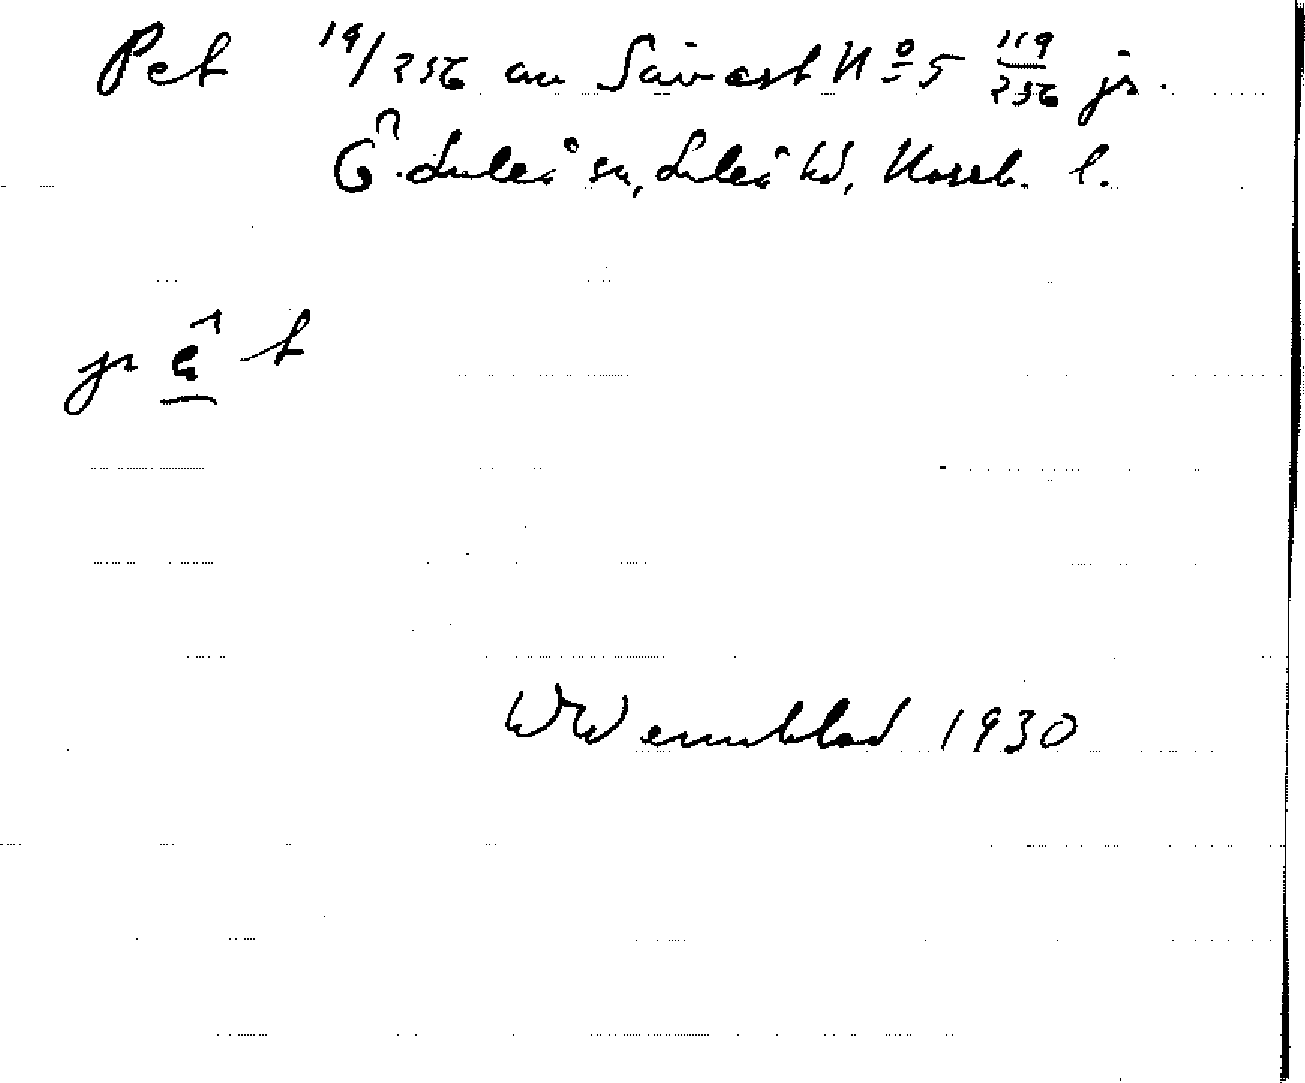 Pet 19/256 av Sävast Nº 5 119/256 jr.
Ö. Luleå sn, Luleå hd, Norrb. l.
jr ê t
W Wennblad 1930